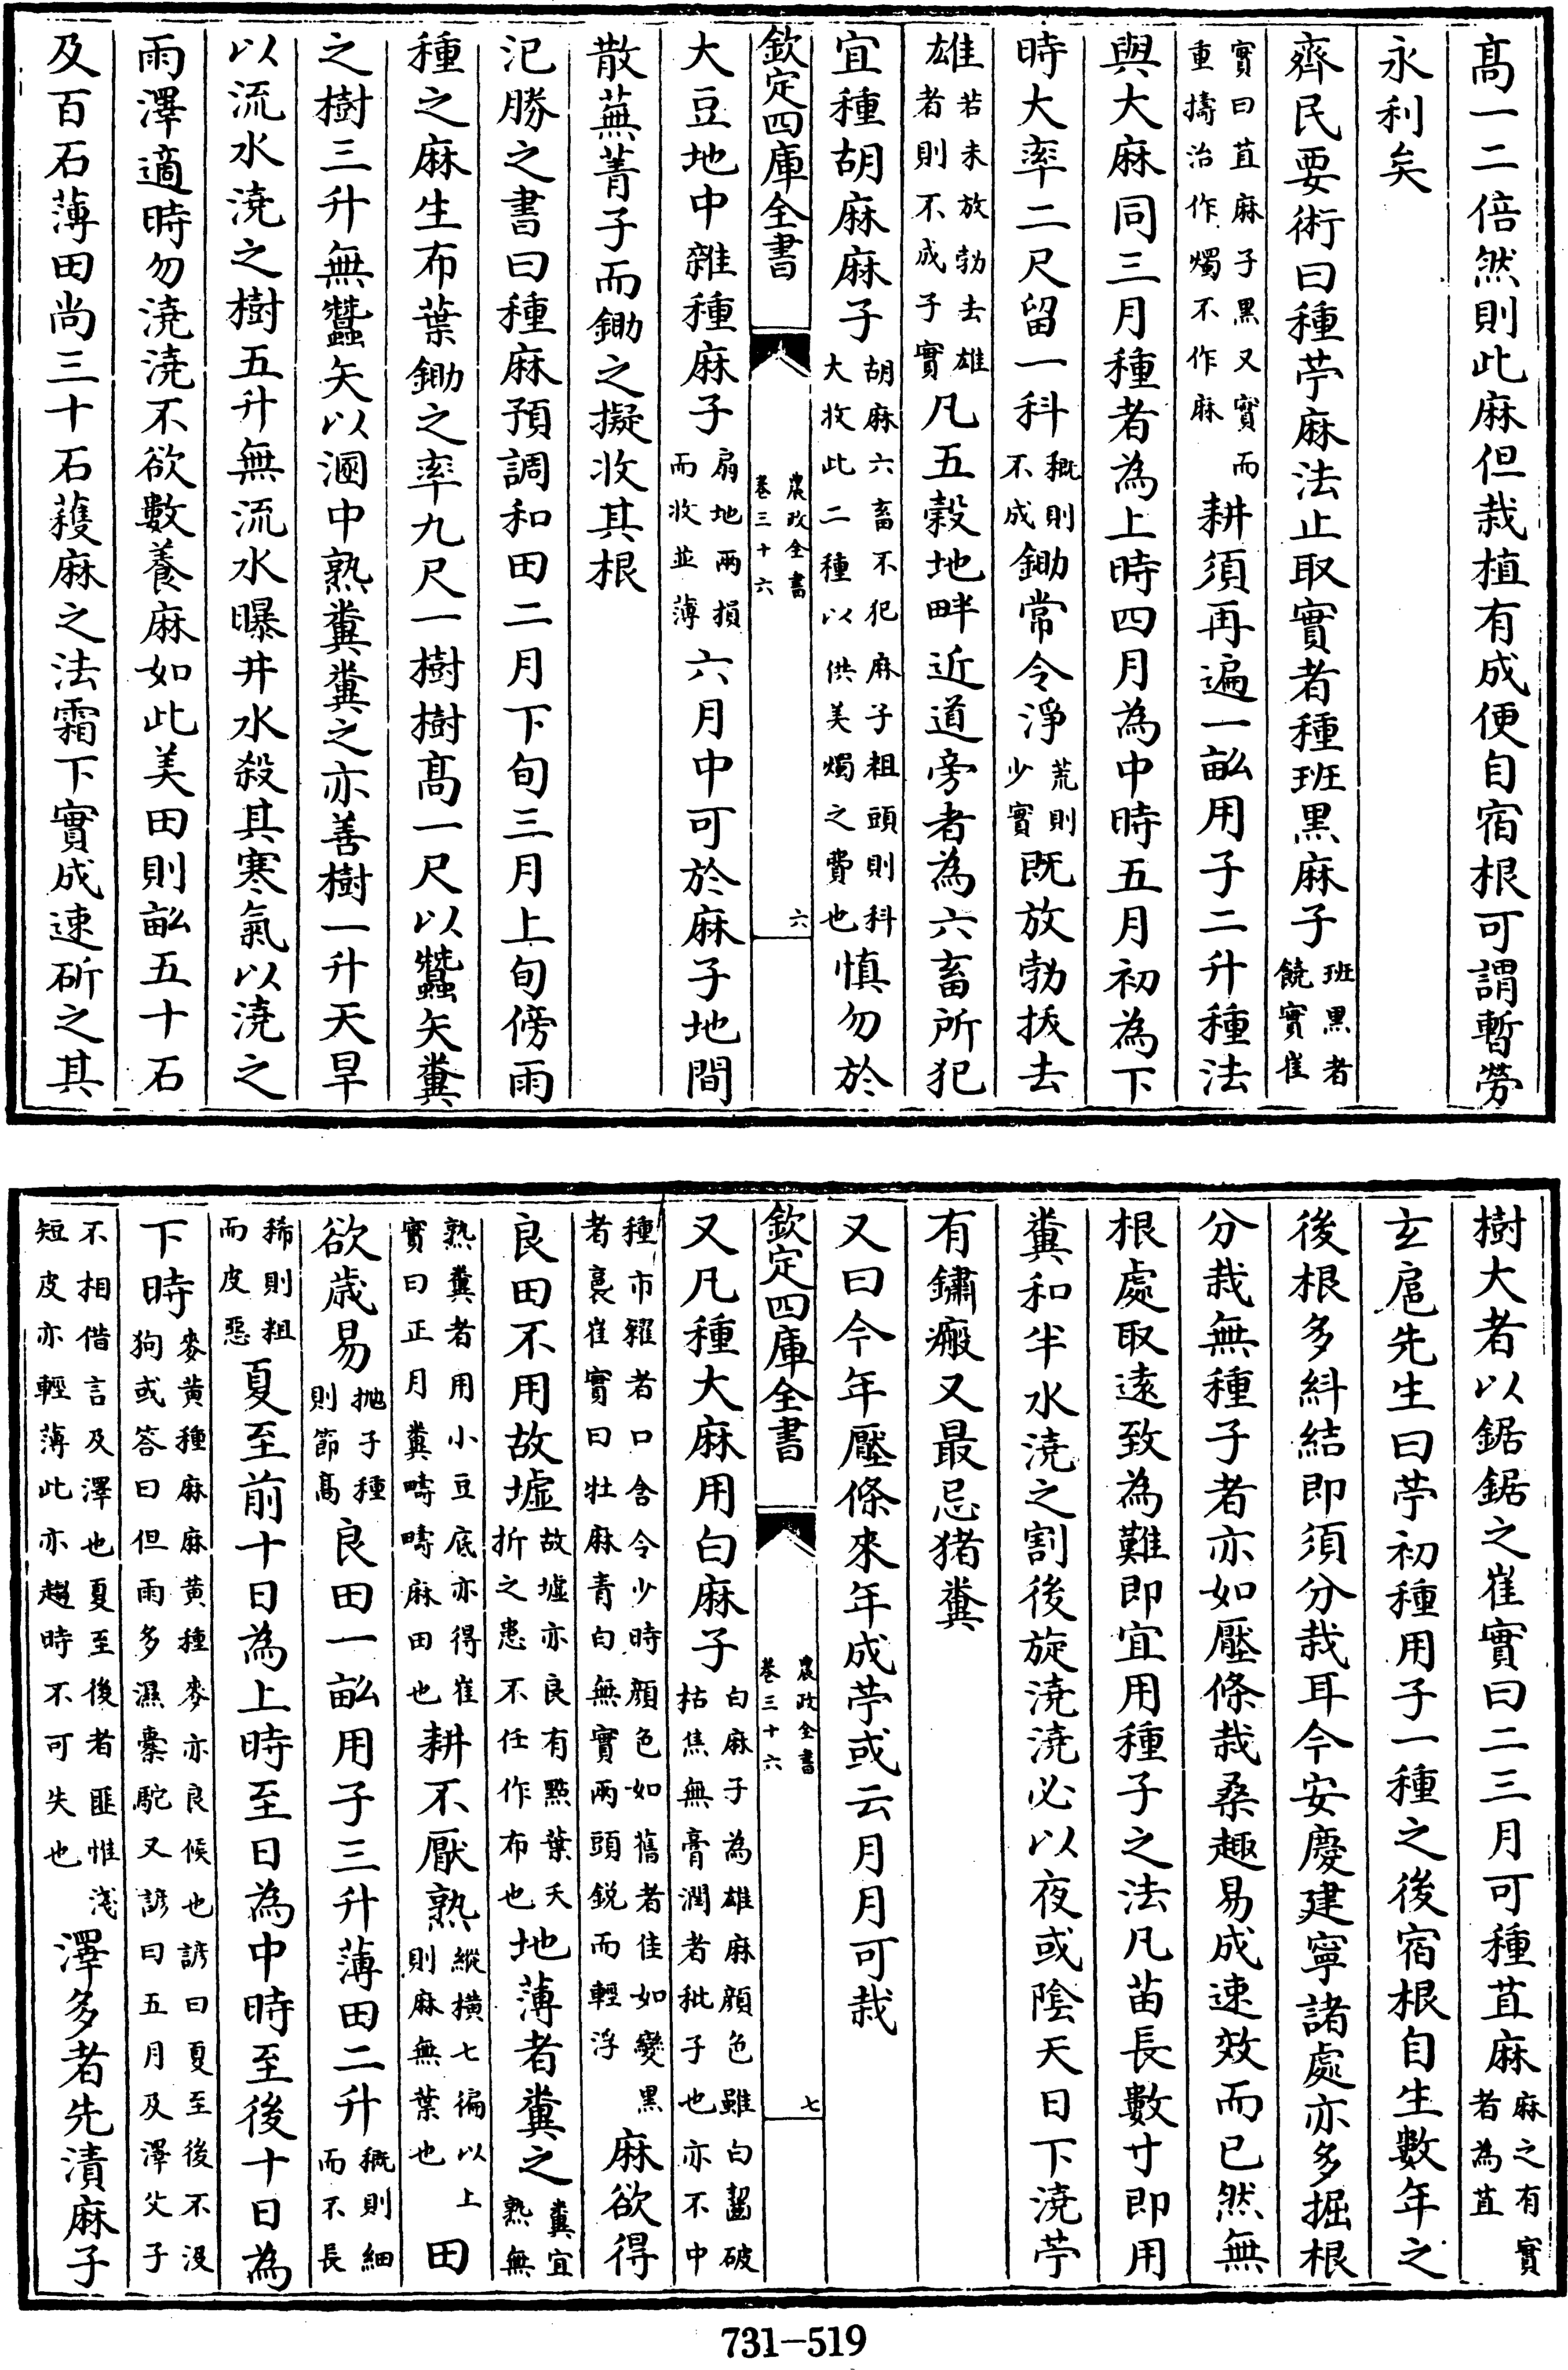 高一二倍然則此麻但栽植有成便自宿根可謂暫勞
永利矣
齊民要術曰種苧麻法止取實者種班黒麻子班黒者饒實崔
實曰苴麻子黒又實而重擣治作燭不作麻耕須再遍一畆用子二升種法
與大麻同三月種者為上時四月為中時五月初為下
時大率二尺留一科穊則不成鋤常令淨荒則少實既放勃拔去
雄若未放勃去雄者則不成子實凡五穀地畔近道旁者為六畜所犯
宜種胡麻麻子胡麻六畜不犯麻子粗頭則科大收此二種以供美燭之費也慎勿於
欽定四庫全書 農政全書卷三十六 六
大豆地中雜種麻子扇地兩損而收並薄六月中可於麻子地間
散蕪菁子而鋤之擬收其根
氾勝之書曰種麻預調和田二月下旬三月上旬傍雨
種之麻生布葉鋤之率九尺一樹樹高一尺以蠶矢糞
之樹三升無蠶矢以溷中熟糞糞之亦善樹一升天旱
以流水澆之樹五升無流水曝井水殺其寒氣以澆之
雨澤適時勿澆澆不欲數養麻如此美田則畆五十石
及百石薄田尚三十石穫麻之法霜下實成速斫之其
樹大者以鋸鋸之崔實曰二三月可種苴麻麻之有實者為苴
玄扈先生曰苧初種用子一種之後宿根自生數年之
後根多糾結即須分栽耳今安慶建寧諸處亦多掘根
分栽無種子者亦如壓條栽桑趣易成速效而已然無
根處取遠致為難即宜用種子之法凡苗長數寸即用
糞和半水澆之割後旋澆澆必以夜或隂天日下澆苧
有鏽瘢又最忌猪糞
又曰今年壓條來年成苧或云月月可栽
欽定四庫全書 農政全書卷三十六 七
又凡種大麻用白麻子白麻子為雄麻顔色雖白齧破枯焦無膏潤者秕子也亦不中
種市糴者口含令少時顔色如舊者佳如變黒者裛崔實曰牡麻青白無實兩頭鋭而輕浮麻欲得
良田不用故墟故墟亦良有點葉夭折之患不任作布也地薄者糞之糞宜熟無
熟糞者用小豆底亦得崔實曰正月糞疇疇麻田也耕不厭熟縱横七徧以上則麻無葉也田
欲歳易抛子種則節高良田一畆用子三升薄田二升穊則細而不長
稀則粗而皮惡夏至前十日為上時至日為中時至後十日為
下時麥黄種麻麻黄種麥亦良候也諺曰夏至後不没狗或答曰但雨多濕槖駝又諺曰五月及澤父子
不相借言及澤也夏至後者匪惟淺短皮亦輕薄此亦趨時不可失也澤多者先漬麻子
731-519